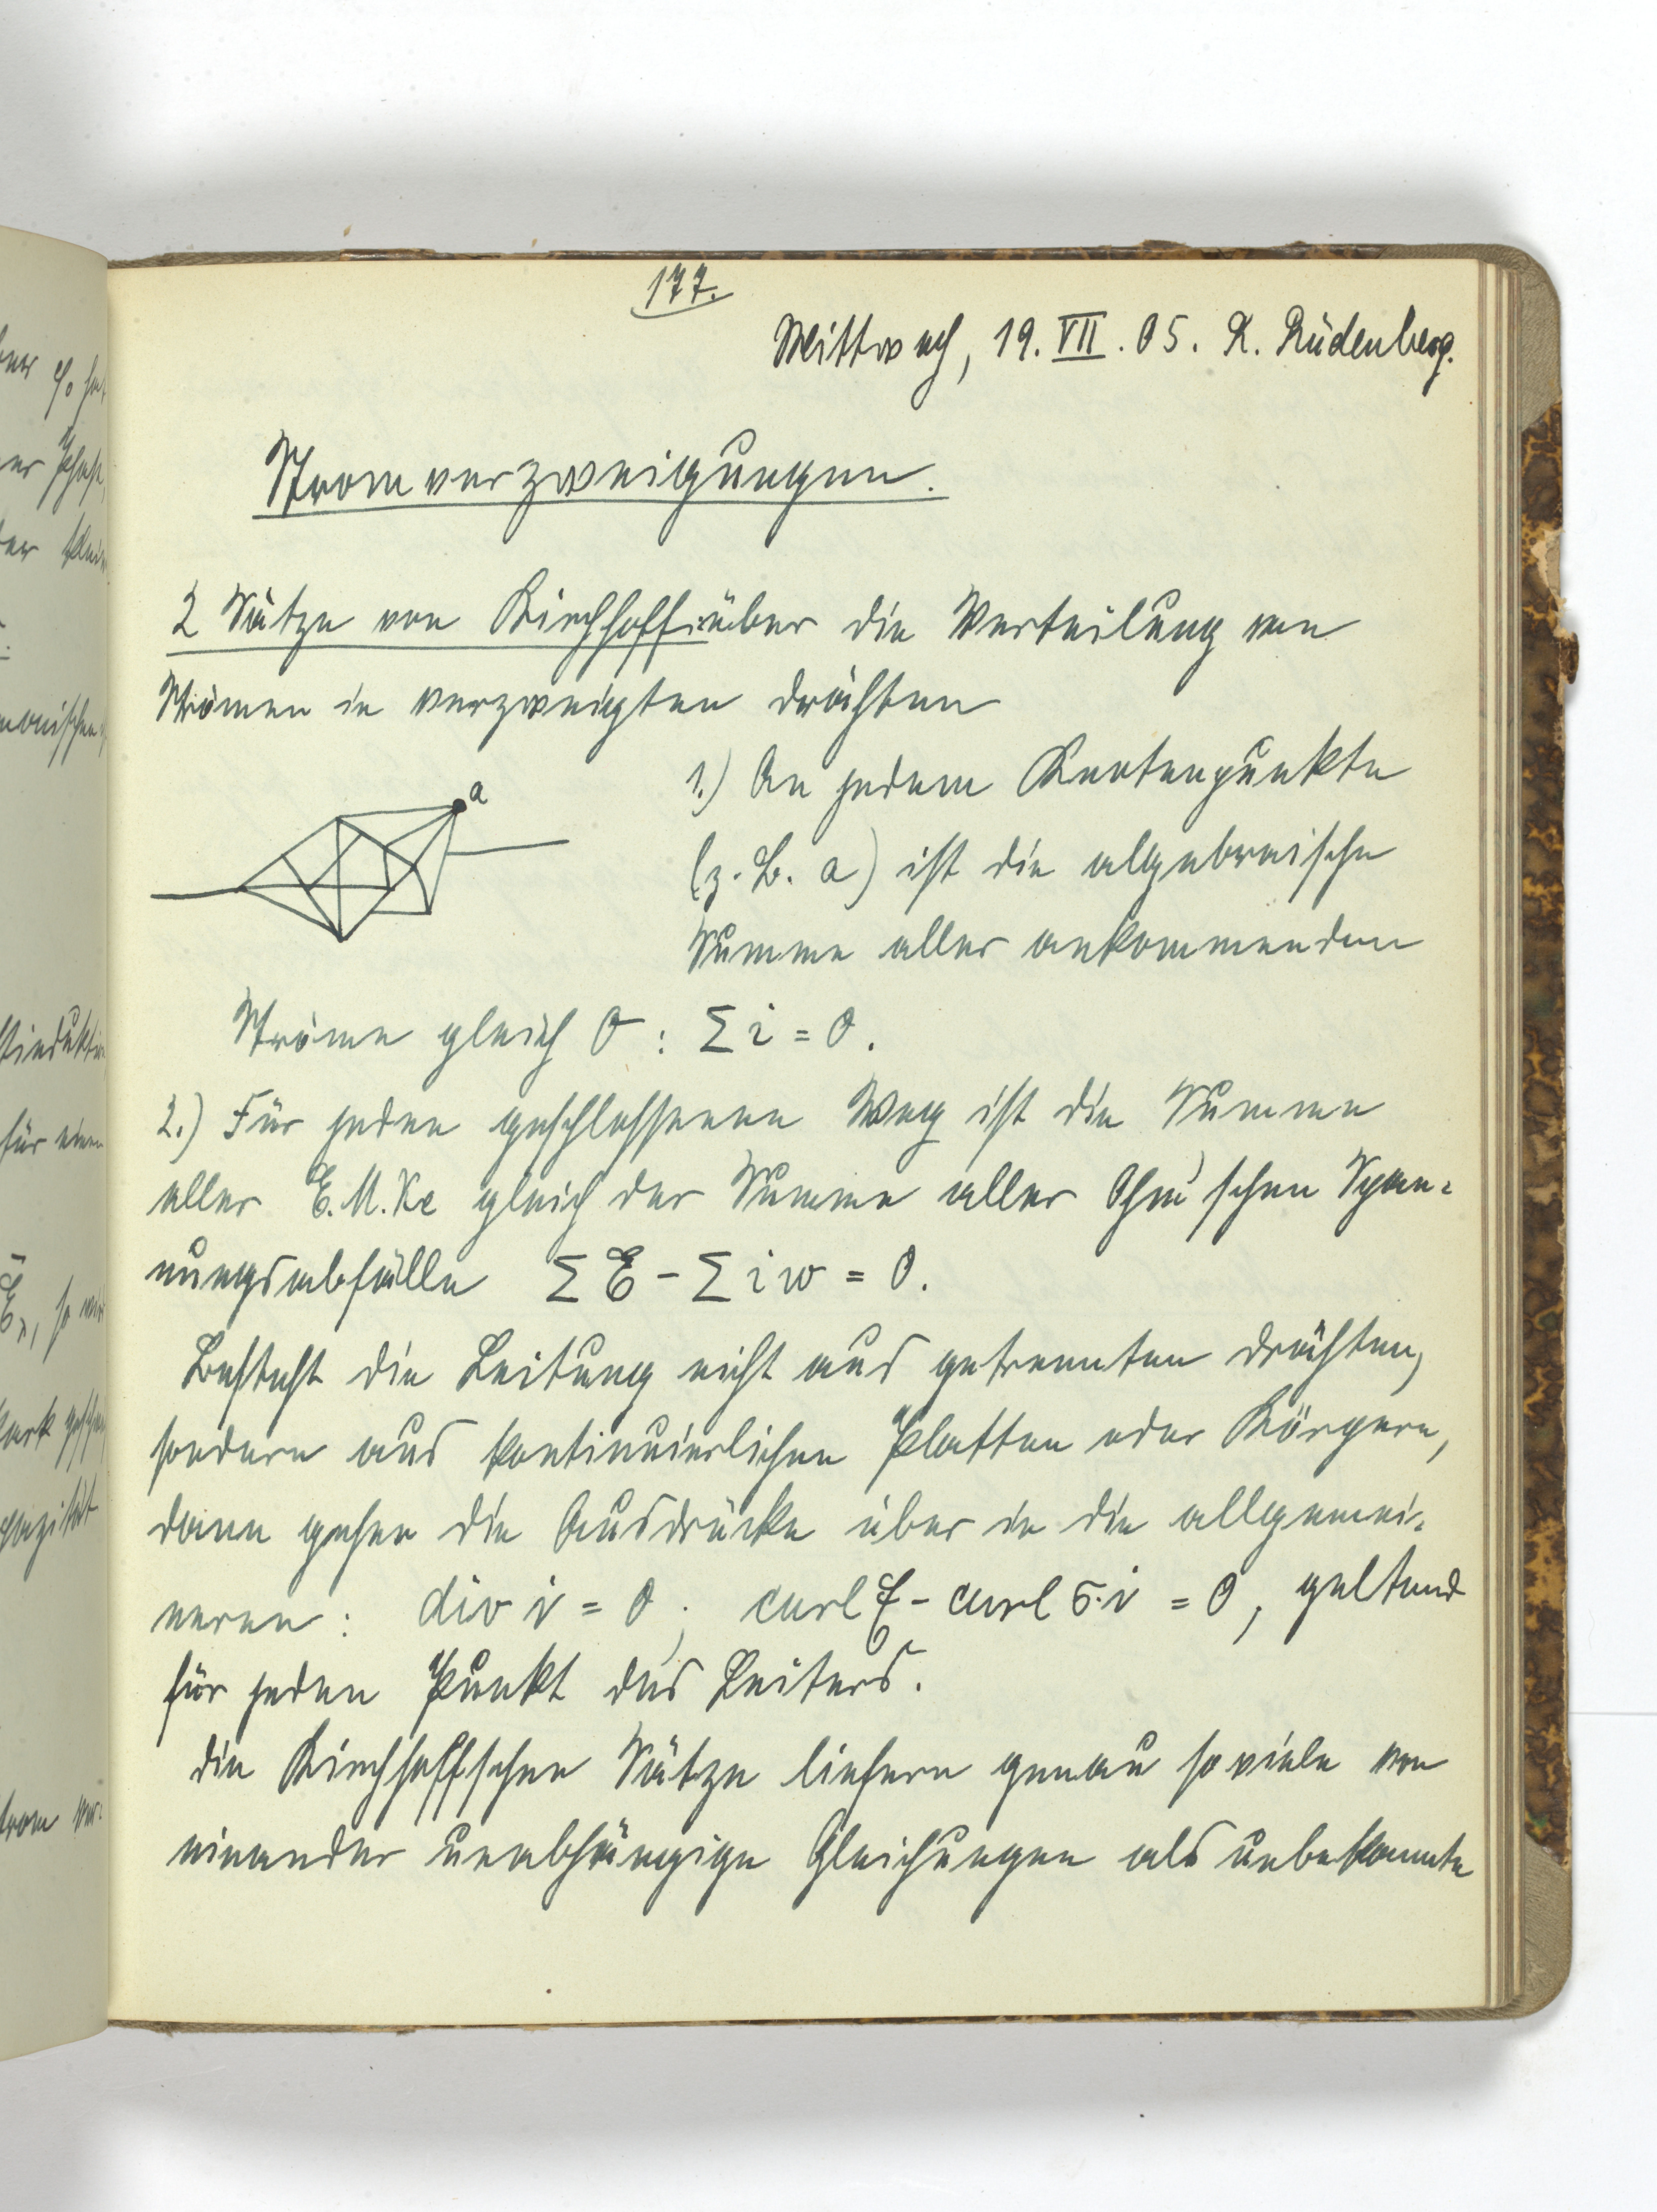 177.
Mittwoch, 19. VII. 05. R. Rüdenberg.
Stromverzweigungen.
2 Sätze von Kirchhoff: über die Verteilung von
Strömen in verzweigten Drähten
a
1.) An jedem Knotenpunkte
(z. B. a) ist die algebraische
Summe aller ankommenden
Ströme gleich 0 : Σ i = 0.
2.) Für jeden geschlossenen Weg ist die Summe
aller E.M.Ke gleich der Summe aller Ohm'schen Span-
nungsabfälle Σ E - Σ i w = 0.
Besteht die Leitung nicht aus getrennten Drähten,
sondern aus kontinuierlichen Platten oder Körpern,
dann gehen die Ausdrücke über in die allgemei-
neren: div i = 0; curl - curl σ·i = 0, geltend
für jeden Punkt des Leiters.
Die Kirchhoffschen Sätze liefern genau so viele von
einander unabhängige Gleichungen als unbekannte